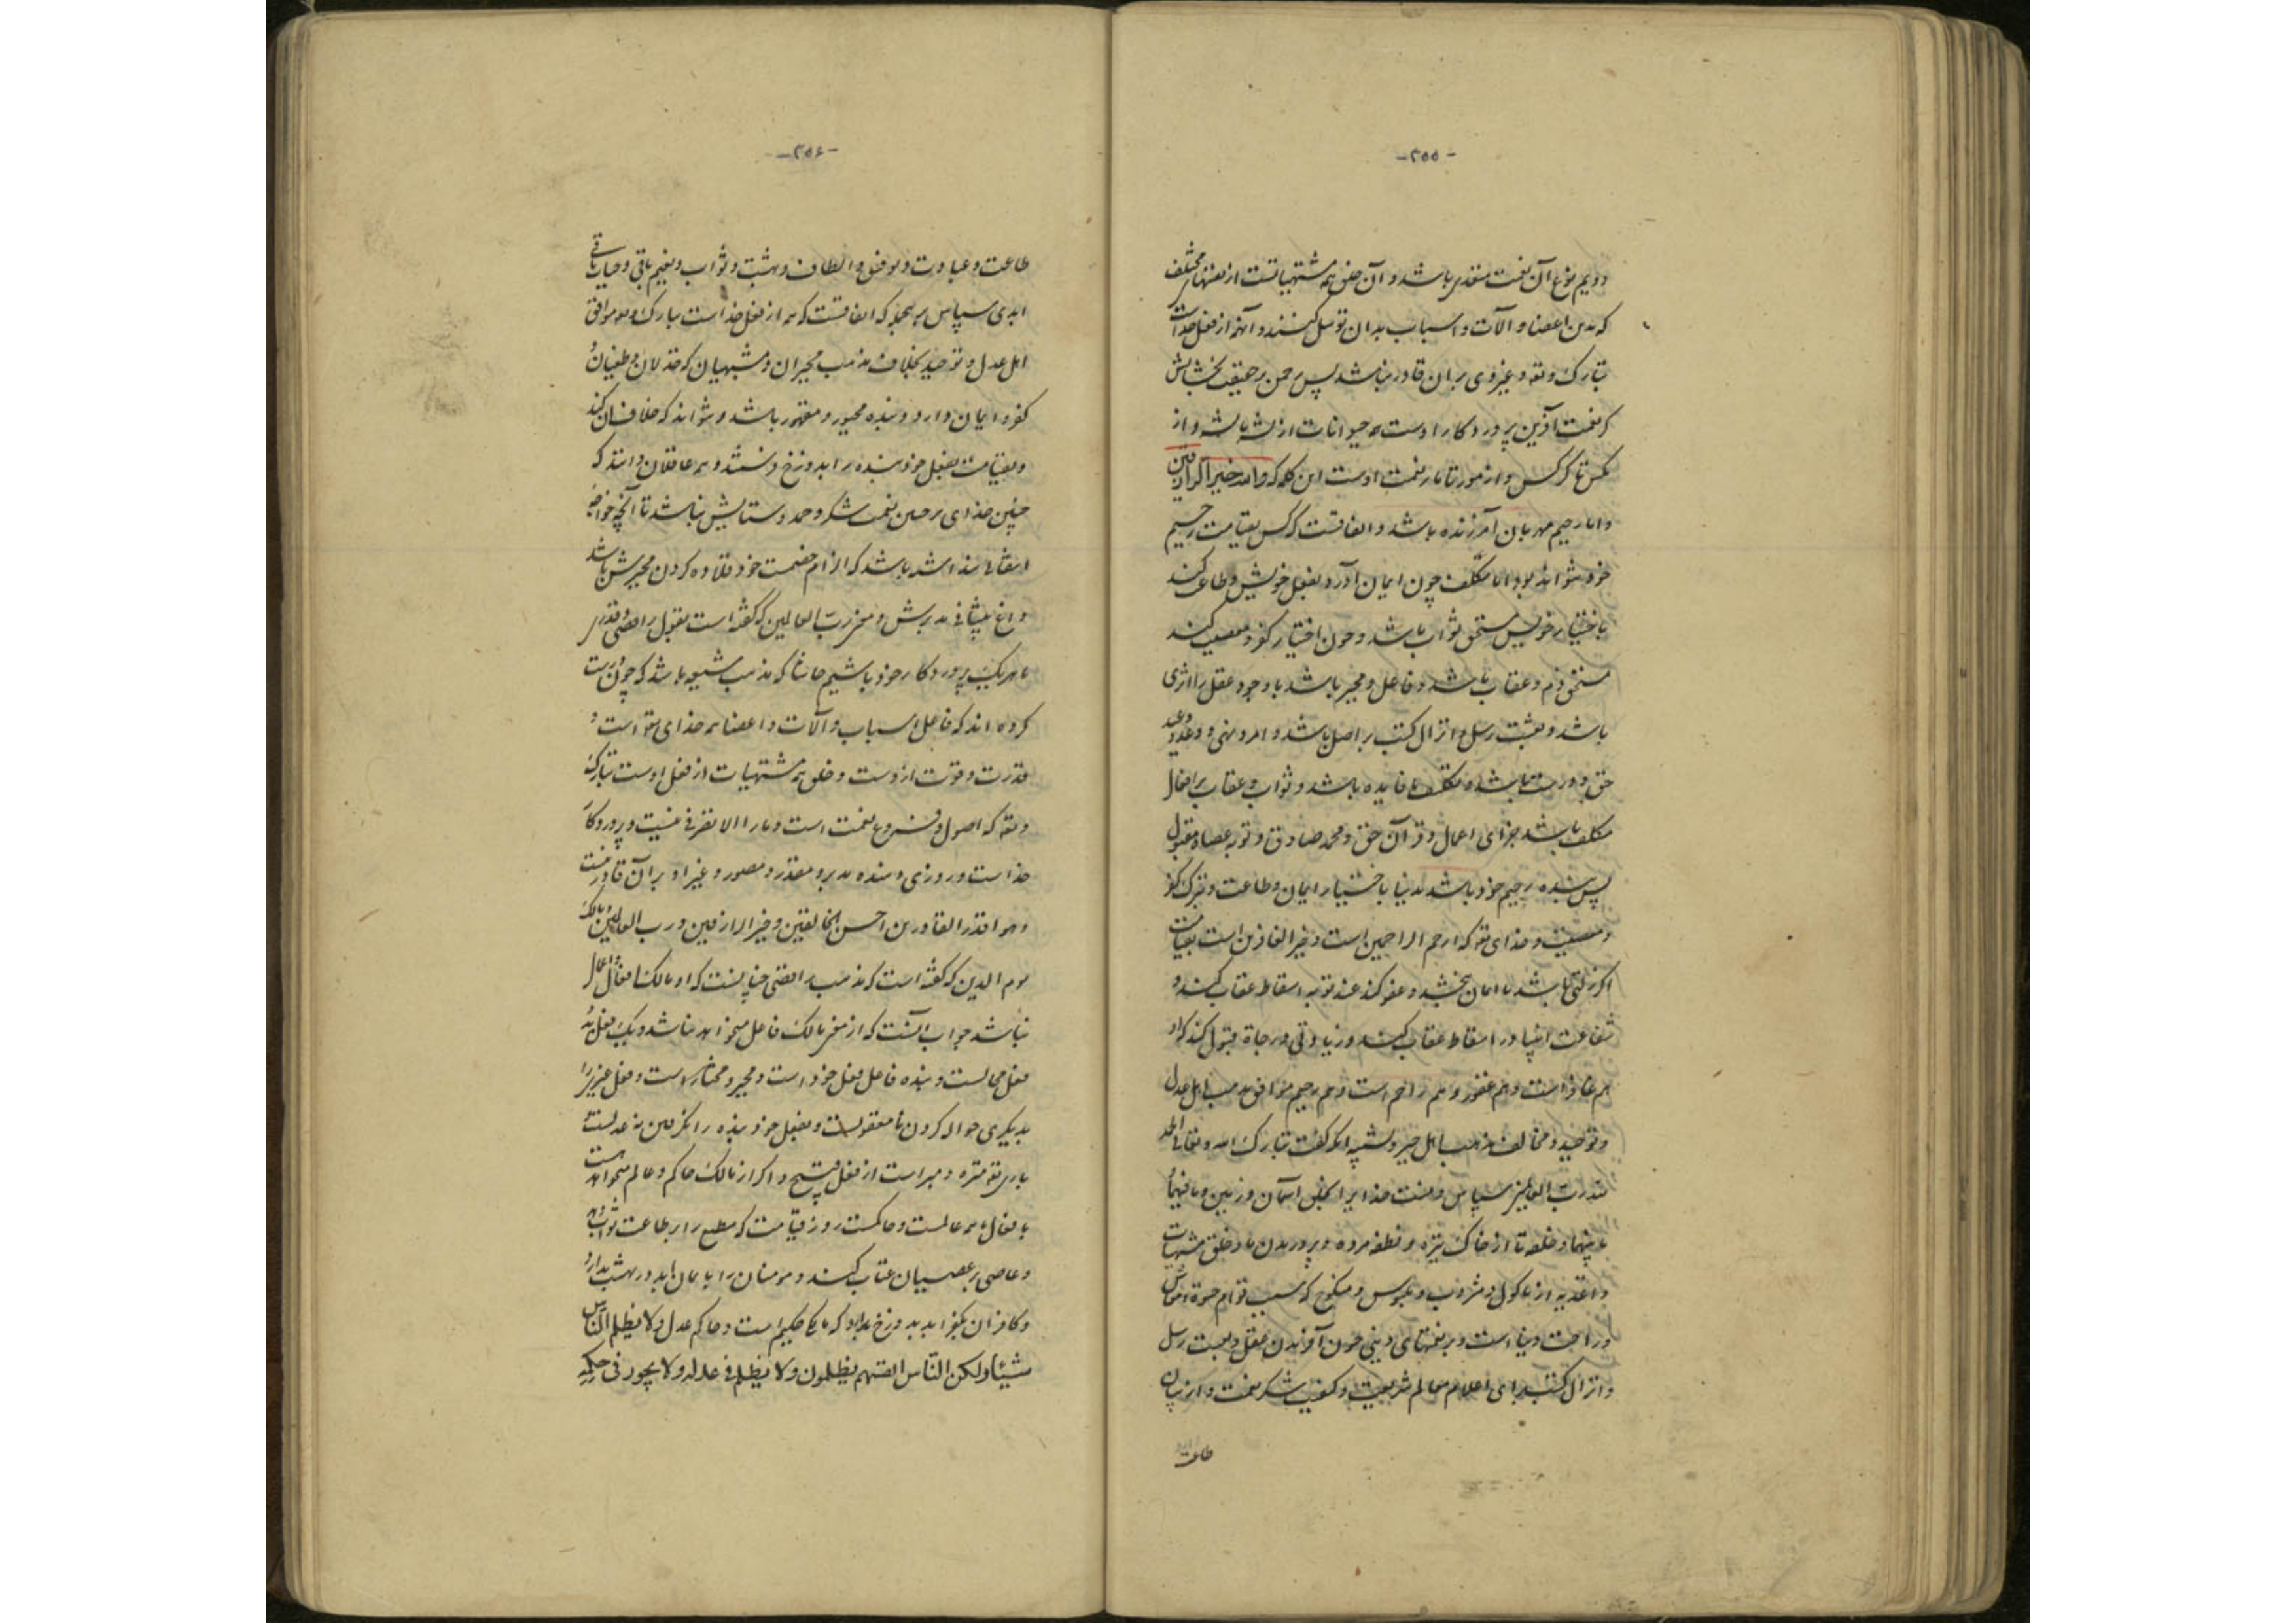 -۲۵۵-
دویم نوع آن نعمت مقدری باشد و آن خلق همه مشتهیاتست از نعمتهای مختلف
که بدین اعضا و آلات و اسباب بدان توسل کنند و آنهمه از فعل خداست
تبارک و تعه و غیر وی بر آن قادر نباشد پس رحمن بر حقیقت بخشایش
گر نعمت آفرین پروردگار اوست حیوانات از پشه بایشه و از
مگس تا کرکس و از مور تا مار نعمت اوست این کلمه که والله خیر الرازقین
و اما رحیم مهربان آمرزنده باشد و اتفاقست که کس بقیامت رحیم
خود نتواند بود اما مکلف چون ایمان آورد بفعل خویش و طاعت کند
باختیار خویش مستحق ثواب باشد و چون اختیار کفر و معصیت کند
مستحق ذم و عقاب باشد و فاعل و مخیر باشد با وجود عقل را اثری
باشد و بعثت رسل و انزال کتب را اصل باشد و امر و نهی و وعد و وعید
حق و درست باشد و تکلیف با فایده باشد و ثواب و عقاب بر افعال
مکلف باشد جزای اعمال و قرآن حق و محمد صادق و توبه عصاة مقبول
پس بنده رحیم خود باشد بدنیا باختیار ایمان و طاعت و بترک کفر
و معصیت و خدای تعه که ارحم الراحمین است و خیر الغافرین است بقیامت
اگر زلتی باشد با ایمان ببخشد و عفو کند عند توبه اسقاط عقاب کند و
شفاعت انبیا در اسقاط عقاب کند و زیادتی درجاة قبول کند که او
هم غافر است و هم غفور و هم راحم است و هم رحیم موافق مذهب اهل عدل
و توحید و مخالف مذهب اهل جبر و تشبیه آنکه گفت تبارک الله و تعالی الحمد
لله رب العالمین سپاس و منت خدایرا بخلق آسمان و زمین و ما فیهما
ما بینهما و خلقه تا از خاک تیره و نطفه مرده و پروریدن ما و خلق مشتهیات
و اغذیه از ماکول و مشروب و ملبوس و منکوح که سبب قوام حیوة
و راحت دنیا است و بر نعمتهای دینی چون آفریدن عقل و بعثت رسل
و انزال کتب برای اعلام معالم شریعت و کیفیت شکر نعمت و از بیان
طاعت
-۲۵۶-
طاعت و عبادت و توفیق و الطاف و بهشت و ثواب و نعیم باقی و حیات باقی
ابدی سپاس بر همه که اتفاقست که همه از فعل خداست تبارک و تعه موافق
اهل عدل و توحید بخلاف مذهب مجبران و مشبهیان که خذلان و طغیان
کفر و ایمان دارد و بنده مجبور و مقهور باشد و نتواند که خلاف آن کند
و بقیامت بفعل خود بنده را بدوزخ فرستد و همه عاقلان دانند که
چنین خدای بر چنین نعمت شکر و حمد و ستایش نباشد تا آنچه خواجه
انتقالی باشد که الزام خصمت خود قلاده گردن مجبرش باشد
داغ پیشانی مدبرش و معنی رب العالمین که گفته است بقول رافضی و قدری
ما هر یک پروردگار خود باشیم حاشا که مذهب شیعه باشد که چون درست
کرده اند که فاعل اسباب و آلات و اعضا همه خدای تعه است و
قدرت و قوت ازوست و خلق همه مشتهیات از فعل اوست تبارک
و تعه که اصول و فروع نعمت است و ما را الا تصرفی نیست و پروردگار
خداست و روزی دهنده مدبر و مقدر و مصور و غیر او بر آن قادر نیست
و هو اقدر القادرین احسن الخالقین و خیر الرازقین و رب العالمین مالک
یوم الدین که گفته است که مذهب رافضی چنانست که او مالک افعال و اعمال
نباشد جواب آنست که از معنی مالک فاعل میخواهد نباشد و یک فعل بدو
فعل محالست و بنده فاعل فعل خود است و مخیر و مختار است و فعل غیر را
بدیگری حواله کردن نامعقولست و بفعل خود بنده را گرفتن نه عدلست
باری تعه منزه و مبراست از فعل قبیح و اگر از مالک حاکم و عالم میخواهد هست
بافعال همه عالمست و حاکمست روز قیامت که مطیع را بر طاعت ثواب دهد
و عاصی بر عصیان عتاب کند و مومنان را با ایمان ابد در بهشت بدارد
و کافران بکفر ابد بدوزخ بدارد که مالک حکیم است و حاکم عدل و لا یظلم الناس
شیئا و لکن الناس انفسهم یظلمون و لا یظلم فی عدله و لا یجور فی حکمه